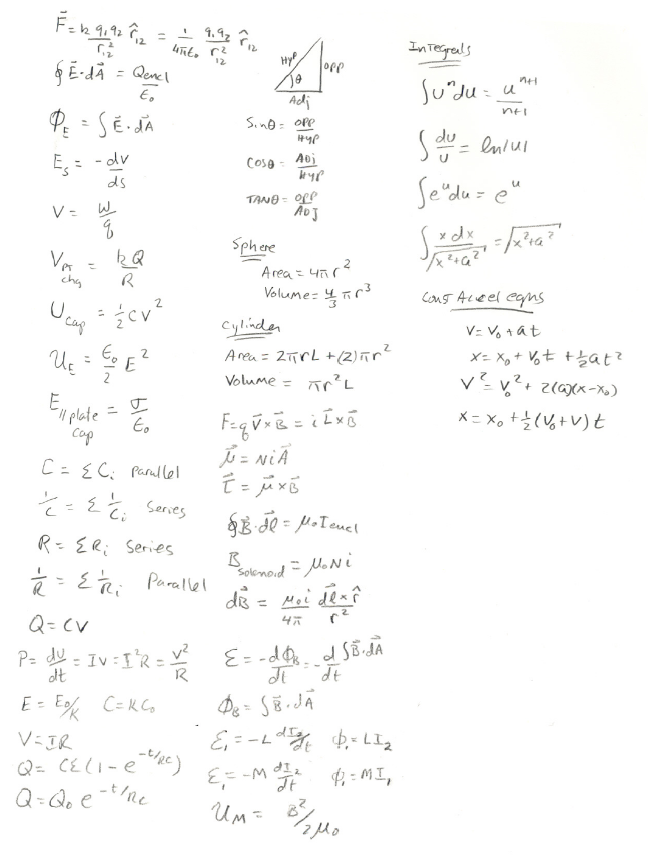 F⃗ = k q₁q₂/r₁₂² r̂₁₂ = 1/4πε₀ q₁q₂/r₁₂² r̂₁₂
∮E⃗·dA⃗ = Qencl/ε₀
Φ_E = ∫E⃗·dA⃗
E_s = -dV/ds
V = W/q
V_PT chg = kQ/R
U_cap = ½CV²
u_E = ε₀/2 E²
E_// plate cap = σ/ε₀
C = ΣCᵢ Parallel
1/C = Σ 1/Cᵢ Series
R = ΣRᵢ Series
1/R = Σ 1/Rᵢ Parallel
Q = CV
P = dU/dt = IV = I²R = V²/R
E = E₀/K C = KC₀
V = IR
Q = Cℰ(1 - e^(-t/RC))
Q = Q₀ e^(-t/RC)
Hyp
opp
θ
Adj
Sinθ = opp/Hyp
Cosθ = ADj/Hyp
TANθ = opp/ADJ
Sphere
Area = 4πr²
Volume = 4/3 πr³
Cylinder
Area = 2πrL + (2)πr²
Volume = πr²L
F = qV⃗×B⃗ = iL⃗×B⃗
μ⃗ = NiA⃗
τ⃗ = μ⃗×B⃗
∮B⃗·dl⃗ = μ₀Iencl
B_solenoid = μ₀Ni
dB⃗ = μ₀i/4π dl⃗×r̂/r²
ℰ = -dΦ_B/dt = -d/dt ∫B⃗·dA⃗
Φ_B = ∫B⃗·dA⃗
ℰ₁ = -L dI₂/dt Φ₁ = LI₂
ℰ₁ = -M dI₂/dt Φ₁ = MI₁
u_M = B²/2μ₀
Integrals
∫uⁿdu = uⁿ⁺¹/n+1
∫du/u = ln|u|
∫eᵘdu = eᵘ
∫x dx/√(x²+a²) = √(x²+a²)
Const Accel eqns
V = V₀ + at
x = x₀ + V₀t + ½at²
V² = V₀² + 2(a)(x-x₀)
x = x₀ + ½(V₀+V)t